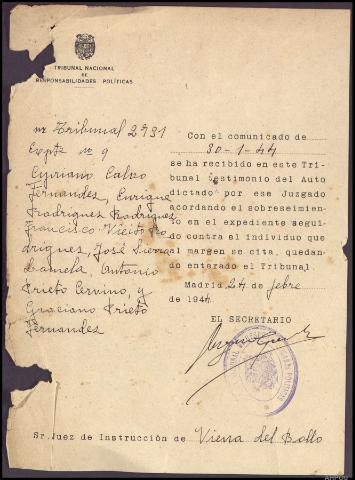 TRIBUNAL NACIONAL
DE
RESPONSABILIDADES POLÍTICAS
nº Tribunal 2931
Expte nº 9
Cipriano Calvo
Fernandes, Enrique
Rodriguez Rodriguez
Francisco Vicito Ro
driguez, José Sierra
Lamela, Antonio
Prieto Cervino, y
Graciano Prieto
Fernandez
Con el comunicado de
30-1-44
se ha recibido en este Tri-
bunal testimonio del Auto
dictado por ese Juzgado
acordando el sobreseimien-
to en el expediente segui-
do contra el individuo que
al margen se cita, quedan-
do enterado el Tribunal.
Madrid 24 de febre
de 1944
EL SECRETARIO
Sr. Juez de Instrucción de Viana del Bollo